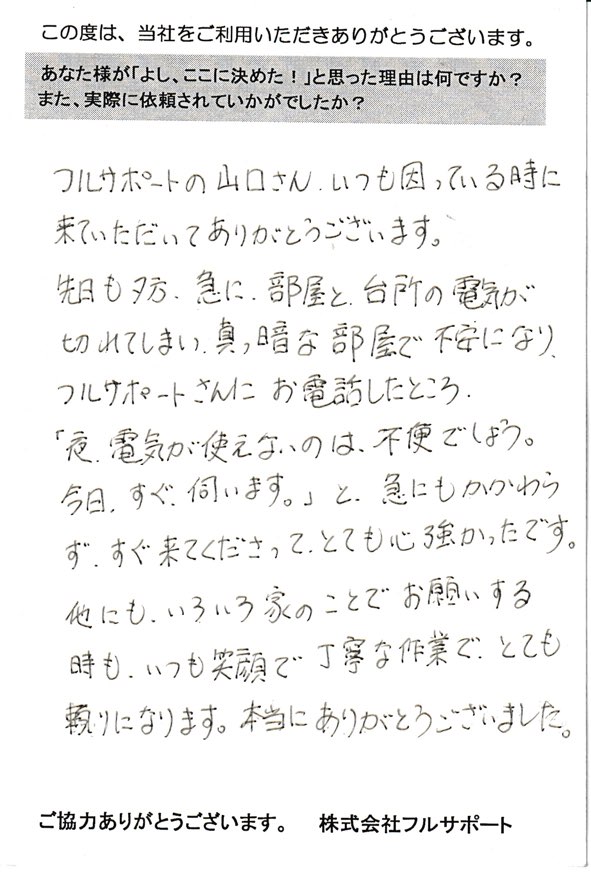 この度は、当社をご利用いただきありがとうございます。
あなた様が「よし、ここに決めた！」と思った理由は何ですか？
また、実際に依頼されていかがでしたか？
フルサポートの山口さん、いつも困っている時に
来ていただいてありがとうございます。
先日も夕方、急に、部屋と、台所の電気が
切れてしまい、真っ暗な部屋で不安になり、
フルサポートさんにお電話したところ、
「夜、電気が使えないのは、不便でしょう。
今日、すぐ、伺います。」と、急にもかかわら
ず、すぐ来てくださって、とても心強かったです。
他にも、いろいろ家のことでお願いする
時も、いつも笑顔で丁寧な作業で、とても
頼りになります。本当にありがとうございました。
ご協力ありがとうございます。　株式会社フルサポート